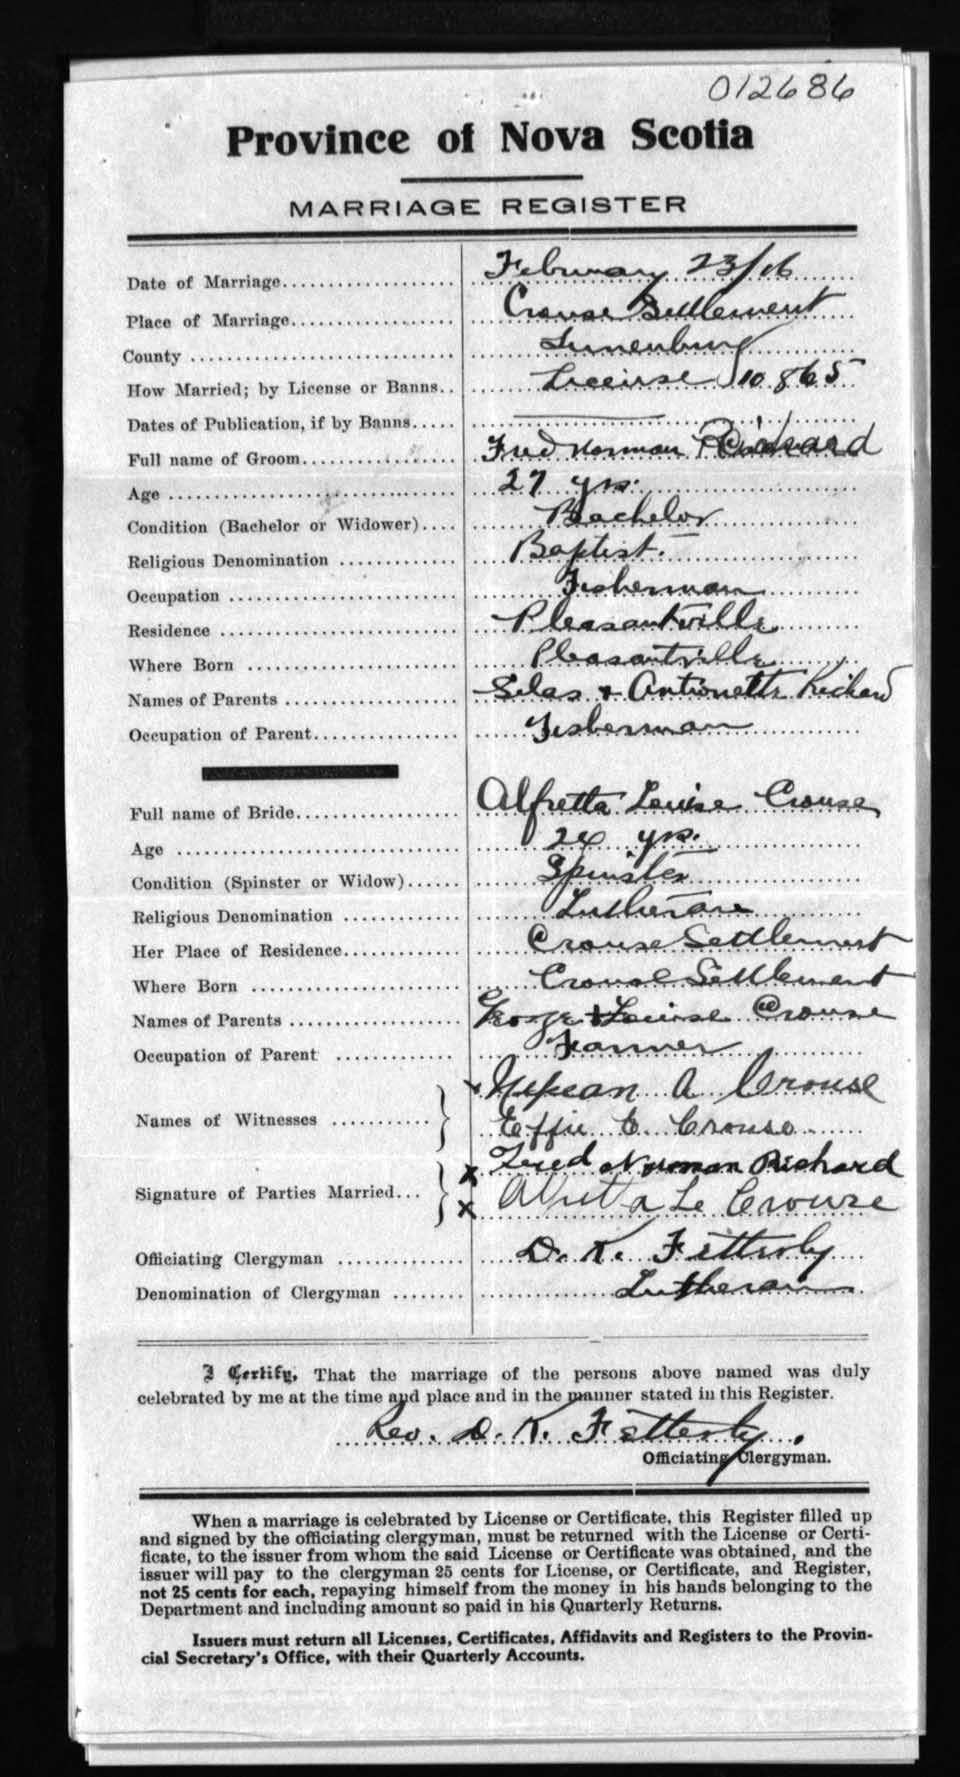 012686
Province of Nova Scotia
MARRIAGE REGISTER
Date of Marriage February 23/16
Place of Marriage Crouse Settlement
County Lunenburg
How Married; by License or Banns License 10865
Dates of Publication, if by Banns
Full name of Groom Fred Norman Richard
Age 27 yrs.
Condition (Bachelor or Widower) Bachelor
Religious Denomination Baptist.
Occupation Fisherman
Residence Pleasantville
Where Born Pleasantville
Names of Parents Silas + Antionette Richard
Occupation of Parent Fisherman
Full name of Bride Alfretta Louise Crouse
Age 24 yrs.
Condition (Spinster or Widow) Spinster
Religious Denomination Lutheran
Her Place of Residence Crouse Settlement
Where Born Crouse Settlement
Names of Parents George + Louise Crouse
Occupation of Parent Farmer
x A Crouse
Names of Witnesses
Effie E. Crouse
x Fred Norman Richard
Signature of Parties Married
x Alfretta Le Crouse
Officiating Clergyman D. K. Fetterly
Denomination of Clergyman Lutheran
I Certify, That the marriage of the persons above named was duly
celebrated by me at the time and place and in the manner stated in this Register.
Rev. D. K. Fetterly.
Officiating Clergyman.
When a marriage is celebrated by License or Certificate, this Register filled up
and signed by the officiating clergyman, must be returned with the License or Certi-
ficate, to the issuer from whom the said License or Certificate was obtained, and the
issuer will pay to the clergyman 25 cents for License, or Certificate, and Register,
not 25 cents for each, repaying himself from the money in his hands belonging to the
Department and including amount so paid in his Quarterly Returns.
Issuers must return all Licenses, Certificates, Affidavits and Registers to the Provin-
cial Secretary's Office, with their Quarterly Accounts.